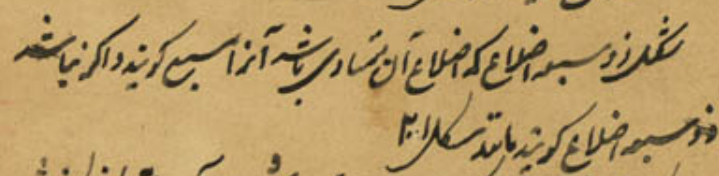 شکل ذو سبعه اضلاع که اضلاع آن متساوی باشد آنرا مسبع کویند و اکر نباشد
ذو سبعه اضلاع کویند مانند شکل